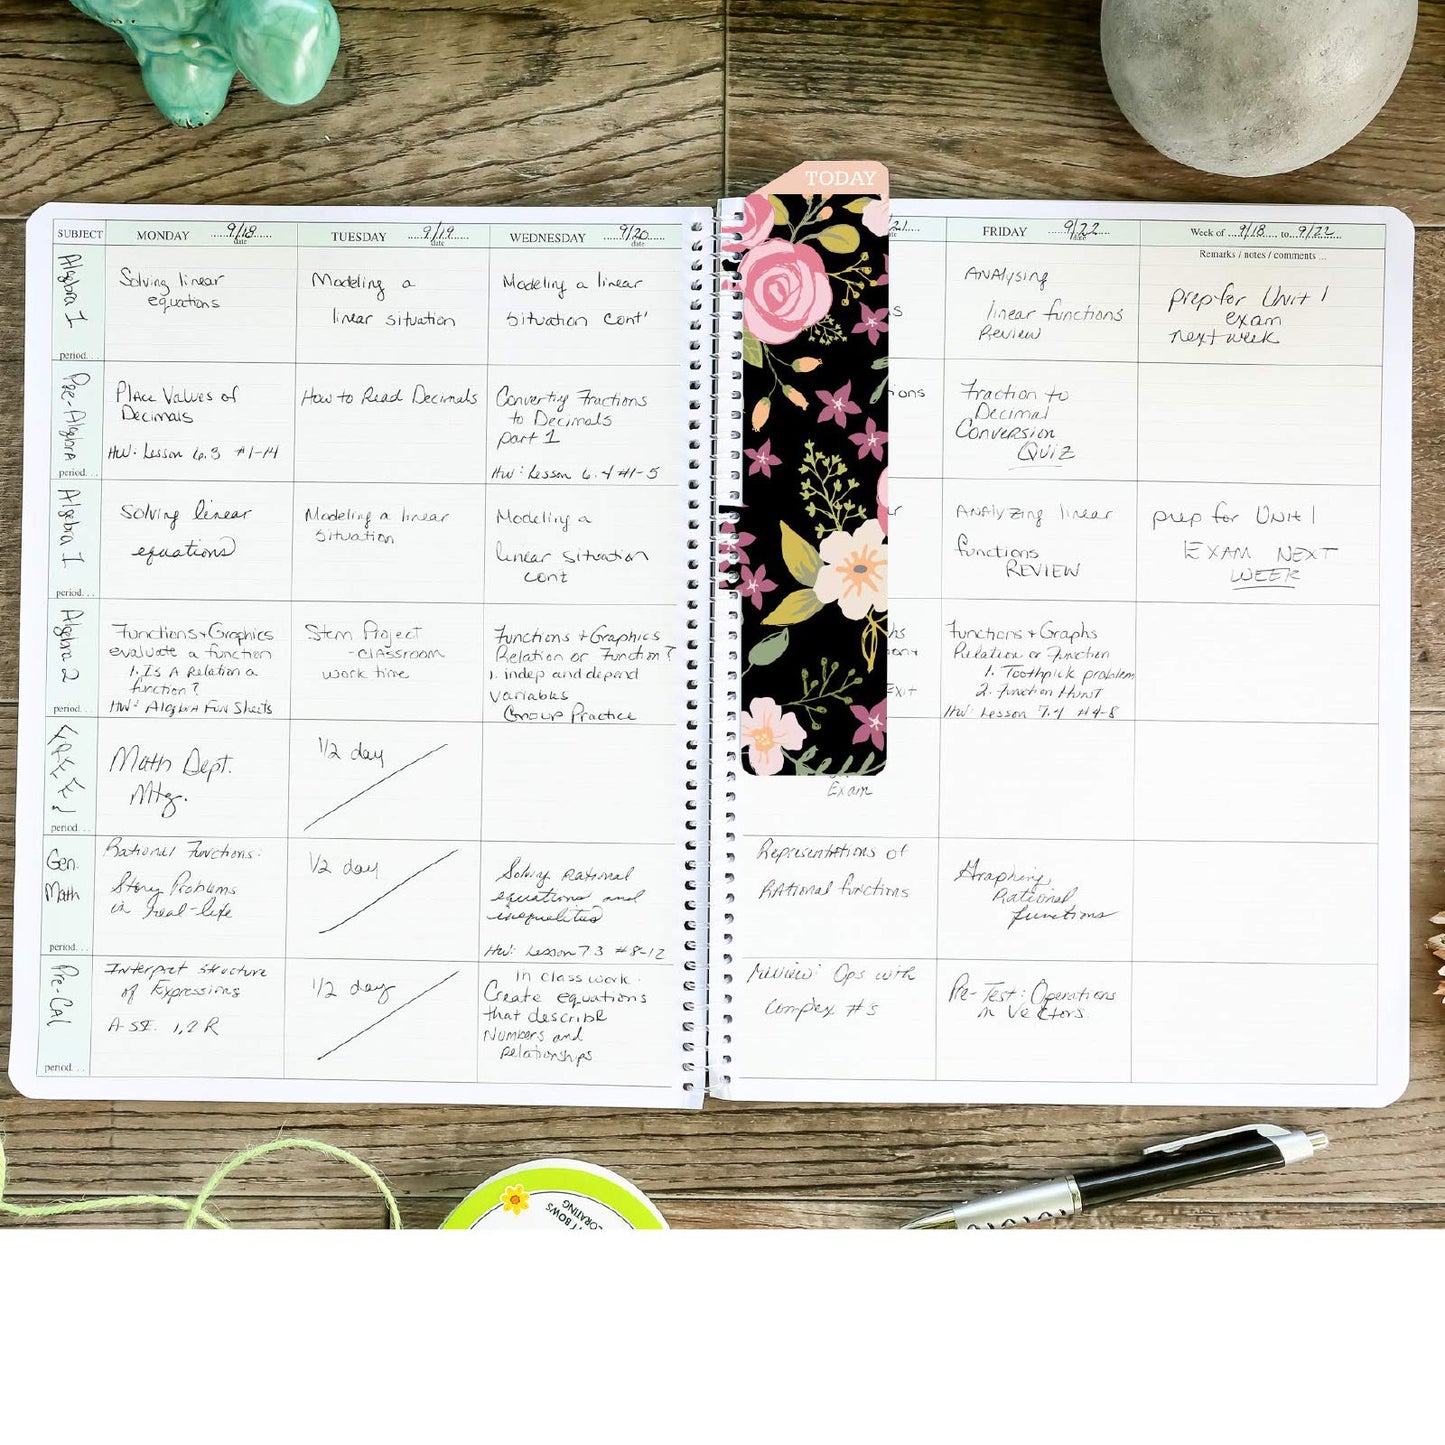 TODAY
SUBJECT
MONDAY 9/18
date
TUESDAY 9/19
date
WEDNESDAY 9/20
date
FRIDAY 9/22
date
Week of 9/18 to 9/22
Remarks / notes / comments ...
Algebra 1
period. . .
Solving linear
equations
Modeling a
linear situation
Modeling a linear
situation cont'
Analysing
linear functions
Review
prep for Unit 1
exam
next week
Pre-Algebra
period. . .
Place Values of
Decimals
HW: Lesson 6.3 #1-14
How to Read Decimals
Converting Fractions
to Decimals
part 1
HW: Lesson 6.4 #1-5
ions
Fraction to
Decimal
Conversion
Quiz
Algebra 1
period. . .
Solving linear
equations
Modeling a linear
situation
Modeling a
linear situation
cont
Analyzing linear
functions
REVIEW
prep for UNIT 1
EXAM NEXT
WEEK
Algebra 2
period. . .
Functions + Graphics
evaluate a function
1. Is A Relation a
function?
HW: Algebra Fun Sheets
Stem Project
- classroom
work time
Functions + Graphics
Relation or Function?
1. indep and depend
variables
Group Practice
Exit
Functions + Graphs
Relation or Function
1. Toothpick problem
2. Function Hunt
HW: Lesson 7.4 #4-8
FREE!
period. . .
Math Dept.
Mtg.
1/2 day
Exam
Gen.
Math
period. . .
Rational Functions:
Story Problems
in real-life
1/2 day
Solving rational
equations and
inequalities
HW: Lesson 7.3 #8-12
Representations of
Rational functions
Graphing
Rational
functions
Pre-Cal
period. . .
Interpret structure
of Expressions
A-SSE. 1,2 R
1/2 day
in class work:
Create equations
that describe
Numbers and
relationships
Review: Ops with
Complex #s
Pre-Test: Operations
in Vectors
BOWS